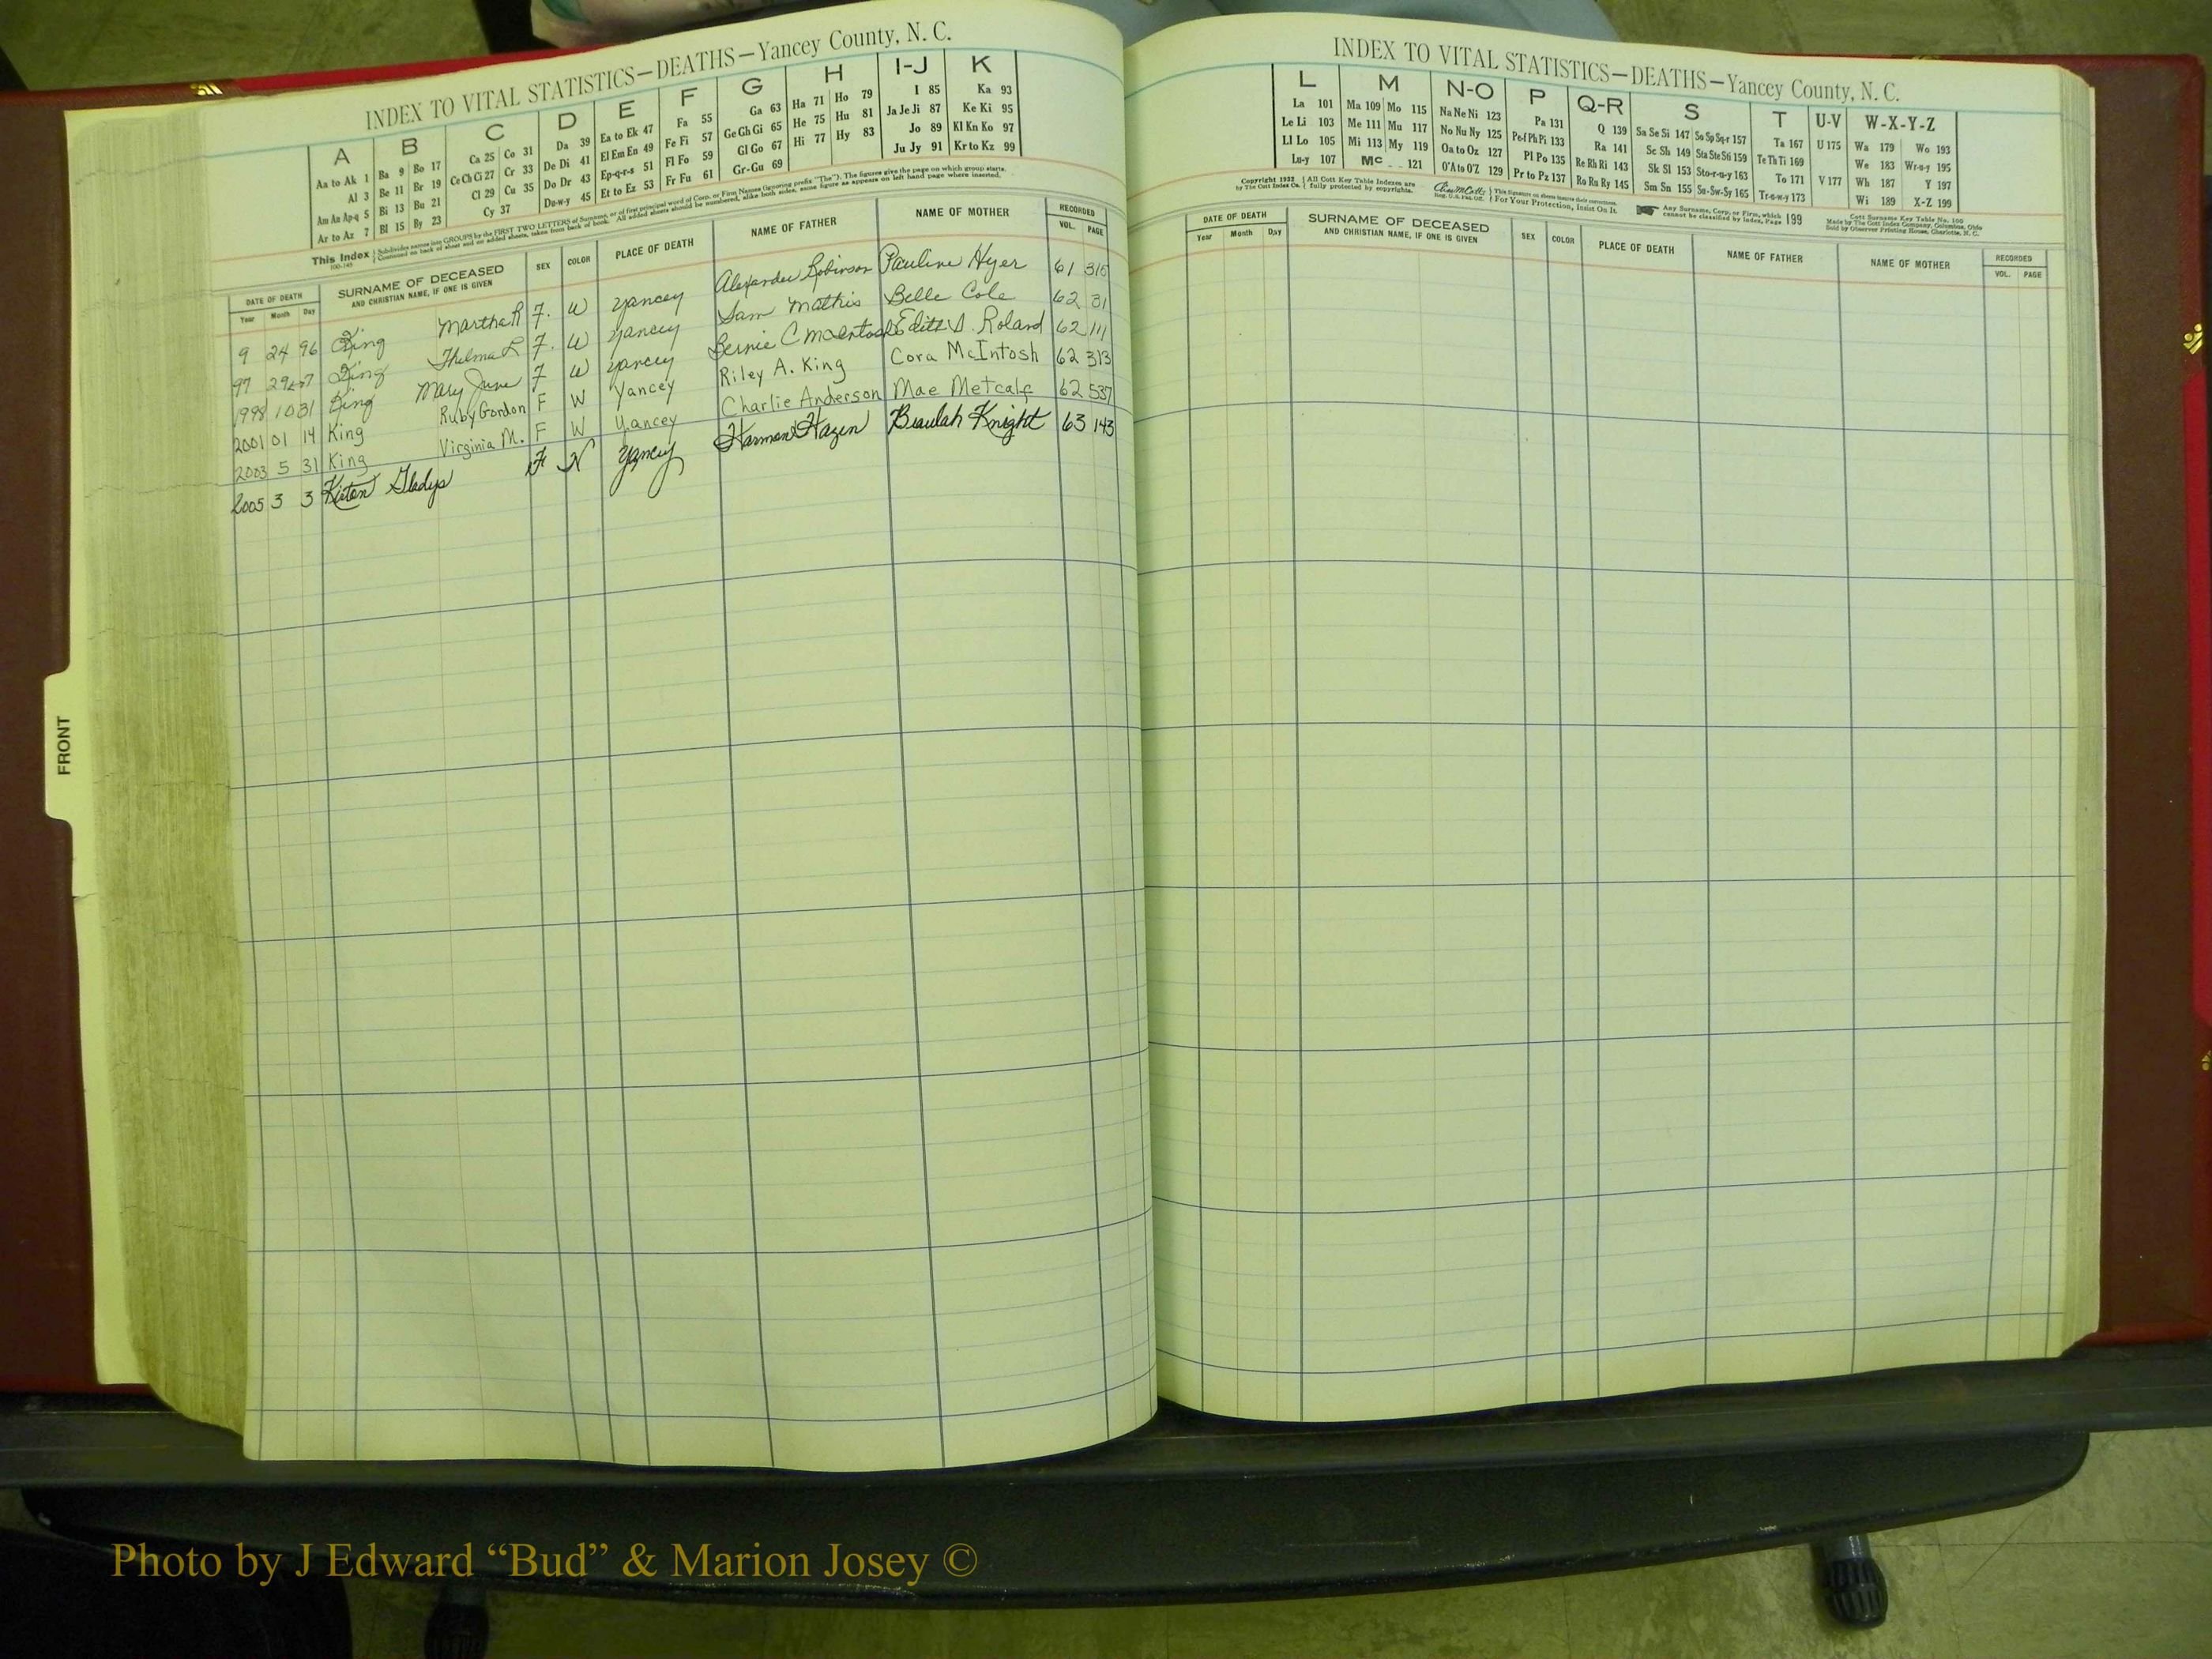 INDEX TO VITAL STATISTICS—DEATHS—Yancey County, N. C.
A B C D E F G H I-J K
Aa to Ak 1 Ba 9 Bo 17 Ca 25 Co 31 Da 39 Ea to Ek 47 Fa 55 Ga 63 Ha 71 Ho 79 I 85 Ka 93
Al 3 Be 11 Br 19 Ce Ch Ci 27 Cr 33 De Di 41 El Em En 49 Fe Fi 57 Ge Gh Gi 65 He 75 Hu 81 Ja Je Ji 87 Ke Ki 95
Am An Ap-q 5 Bi 13 Bu 21 Cl 29 Cu 35 Do Dr 43 Ep-q-r-s 51 Fl Fo 59 Gl Go 67 Hi 77 Hy 83 Jo 89 Kl Kn Ko 97
Ar to Az 7 Bl 15 By 23 Cy 37 Du-w-y 45 Et to Ez 53 Fr Fu 61 Gr-Gu 69 Ju Jy 91 Kr to Kz 99
This Index Subdivides names into GROUPS by the FIRST TWO LETTERS of Surname, or of first principal word of Corp. or First Names (ignoring prefix "The"). The figures give the page on which group starts.
Continued on back of sheet and on added sheets, taken from back of book. All added sheets should be numbered, alike both sides, same figure as appears on left hand page where inserted.
DATE OF DEATH SURNAME OF DECEASED AND CHRISTIAN NAME, IF ONE IS GIVEN SEX COLOR PLACE OF DEATH NAME OF FATHER NAME OF MOTHER RECORDED
Year Month Day VOL. PAGE
9 24 96 King Martha R F. W Yancey Alexander Robinson Pauline Hyer 61 315
97 29 King Thelma L F. W Yancey Sam Mathis Belle Cole 62 31
1998 10 31 King Mary June F W Yancey Bernie C McIntosh Edith S. Roland 62 111
2001 01 14 King Ruby Gordon F W Yancey Riley A. King Cora McIntosh 62 313
2003 5 31 King Virginia M. F W Yancey Charlie Anderson Mae Metcalf 62 537
2005 3 3 Gladys F Yancey Harmon Hazen Beaulah Knight 63 143
FRONT
INDEX TO VITAL STATISTICS—DEATHS—Yancey County, N. C.
L M N-O P Q-R S T U-V W-X-Y-Z
La 101 Ma 109 Mo 115 Na Ne Ni 123 Pa 131 Q 139 Sa Se Si 147 So Sp Sq-r 157 Ta 167 U 175 Wa 179 Wo 193
Le Li 103 Me 111 Mu 117 No Nu Ny 125 Pe-f Ph Pi 133 Ra 141 Sc Sh 149 Sta Ste Sti 159 Te Th Ti 169 We 183 Wr-u-y 195
Ll Lo 105 Mi 113 My 119 Oa to Oz 127 Pl Po 135 Re Rh Ri 143 Sk Sl 153 Sto-r-u-y 163 To 171 V 177 Wh 187 Y 197
Lu-y 107 Mc 121 O'A to O'Z 129 Pr to Pz 137 Ro Ru Ry 145 Sm Sn 155 Su-Sw-Sy 165 Tr-u-w-y 173 Wi 189 X-Z 199
Copyright 1932 by The Cott Index Co. All Cott Key Table Indexes are fully protected by copyrights. For Your Protection, Insist On It. Any Surname, Corp. or Firm, which cannot be classified by index, Page 199
Cott Surname Key Table No. 100
Made by The Cott Index Company, Columbus, Ohio
Sold by Observer Printing House, Charlotte, N. C.
DATE OF DEATH SURNAME OF DECEASED AND CHRISTIAN NAME, IF ONE IS GIVEN SEX COLOR PLACE OF DEATH NAME OF FATHER NAME OF MOTHER RECORDED
Year Month Day VOL. PAGE
Photo by J Edward “Bud” & Marion Josey ©